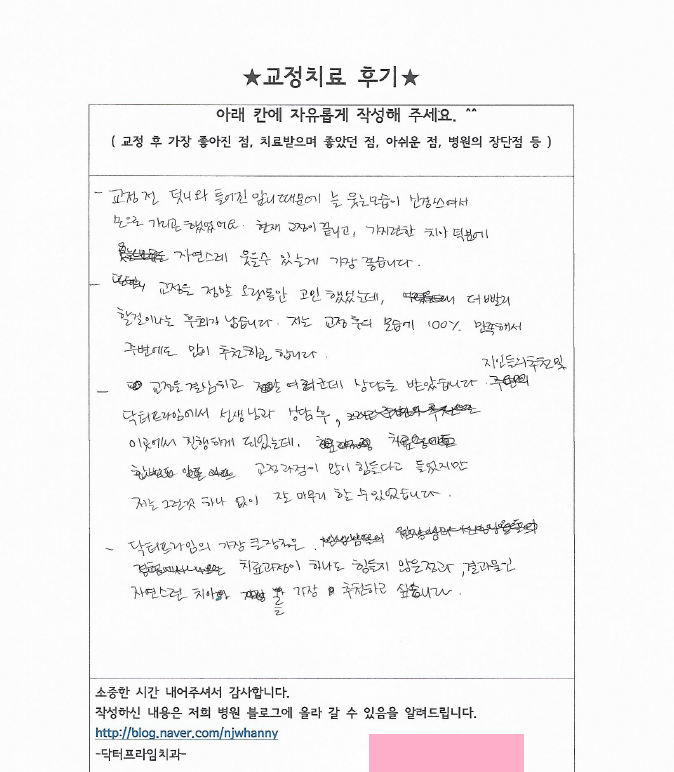 ★교정치료 후기★
아래 칸에 자유롭게 작성해 주세요. ^^
( 교정 후 가장 좋아진 점, 치료받으며 좋았던 점, 아쉬운 점, 병원의 장단점 등 )
- 교정 전 덧니와 틀어진 앞니때문에 늘 웃는모습이 신경쓰여서
손으로 가리곤 했었어요. 현재 교정이 끝나고, 가지런한 치아 덕분에
자연스레 웃을수 있는게 가장 좋습니다.
- 교정을 정말 오랫동안 고민 했었는데, 더 빨리
할걸이라는 후회가 남습니다. 저는 교정 후의 모습에 100% 만족해서
주변에도 많이 추천하곤 합니다.
지인들의 추천 및
- 교정을 결심하고 여러군데 상담을 받았습니다.
닥터프라임에서 선생님과 상담 후,
이곳에서 진행하게 되었는데,
교정과정이 많이 힘들다고 들었지만
저는 그런것 하나 없이 잘 마무리 할 수 있었습니다.
- 닥터프라임의 가장 큰장점은
치료과정이 하나도 힘들지 않은점과, 결과물인
자연스런 치아 를 가장 추천하고 싶습니다.
소중한 시간 내어주셔서 감사합니다.
작성하신 내용은 저희 병원 블로그에 올라 갈 수 있음을 알려드립니다.
http://blog.naver.com/njwhanny
-닥터프라임치과-